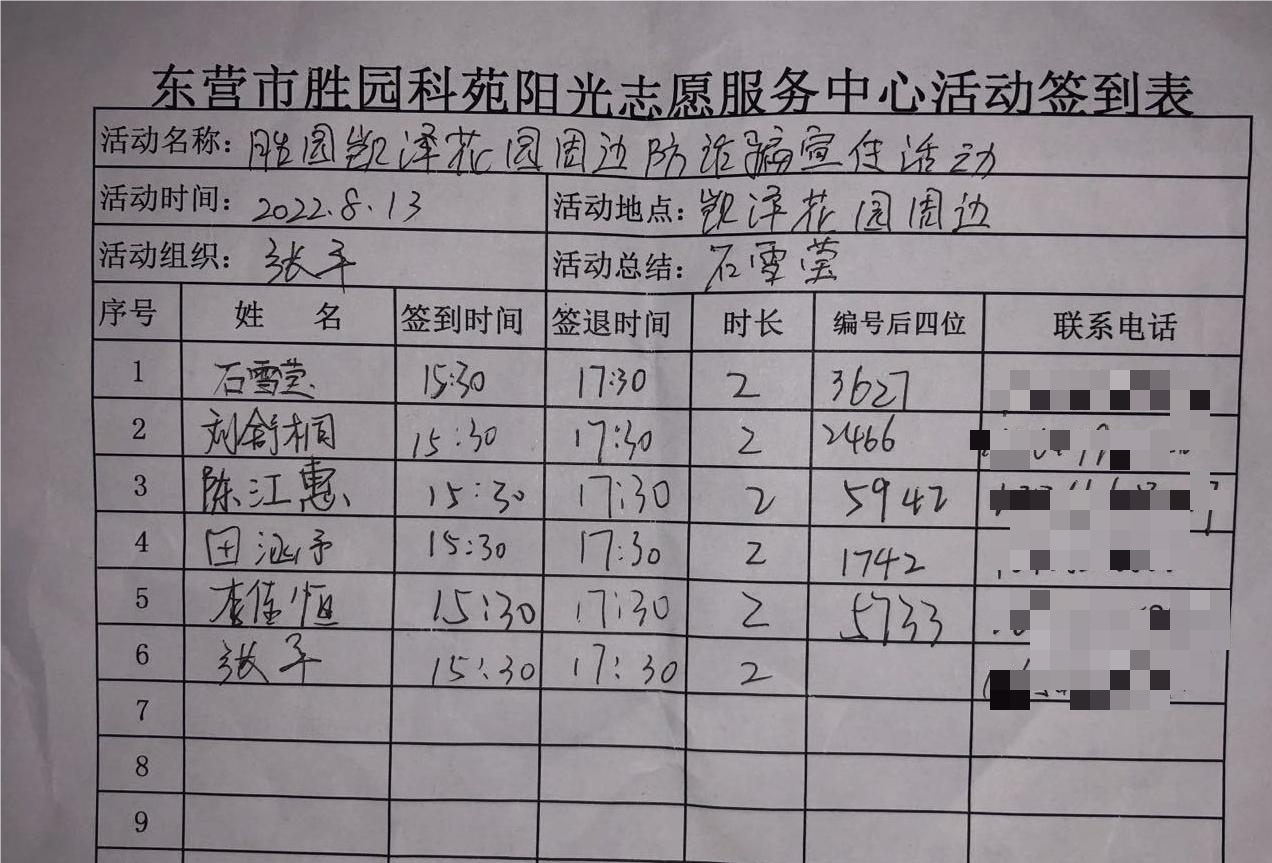 东营市胜园科苑阳光志愿服务中心活动签到表
活动名称：胜园凯泽花园周边防诈骗宣传活动
活动时间：2022.8.13 活动地点：凯泽花园周边
活动组织：张平 活动总结：石雪莹
序号 姓 名 签到时间 签退时间 时长 编号后四位 联系电话
1 石雪莹 15:30 17:30 2 3627
2 刘舒桐 15:30 17:30 2 2466
3 陈江惠 15:30 17:30 2 5942
4 田涵予 15:30 17:30 2 1742
5 李佳恒 15:30 17:30 2 5733
6 张平 15:30 17:30 2
7
8
9